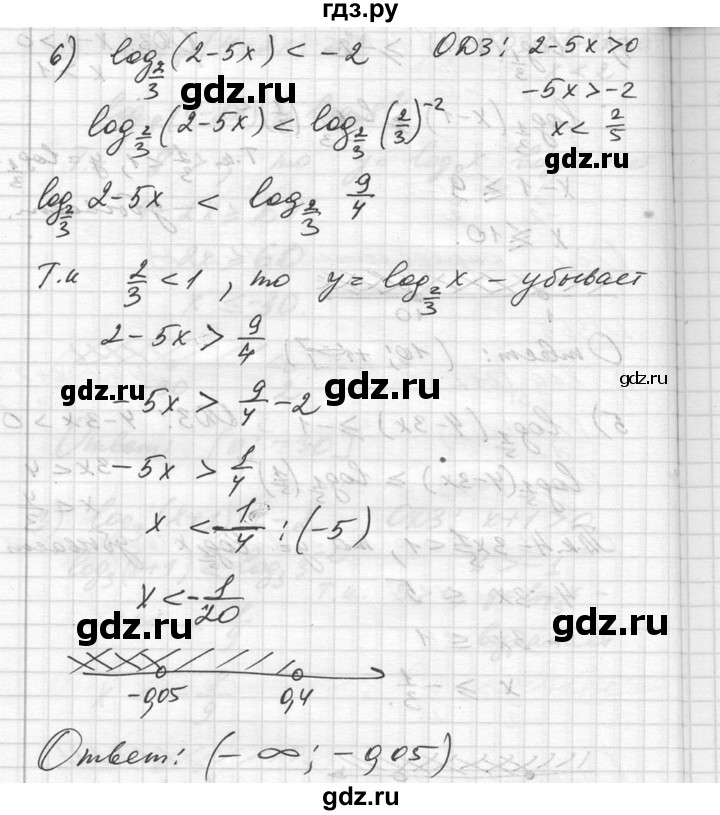 гдз.ру
6) log_{2/3}(2-5x) < -2 ОДЗ: 2-5x>0
-5x>-2
log_{2/3}(2-5x) < log_{2/3}(2/3)^{-2} x < 2/5
gdz.ru
gdz.ru
gdz.ru
log_{2/3} 2-5x < log_{2/3} 9/4
Т.к 2/3 < 1, то y = log_{2/3} x - убывает
2-5x > 9/4
gdz.ru
gdz.ru
gdz.ru
-5x > 9/4 - 2
-5x > 1/4
x < 1/4 : (-5)
gdz.ru
x < -1/20
gdz.ru
gdz.ru
-0,05 0,4
Ответ: (-∞; -0,05)
gdz.ru